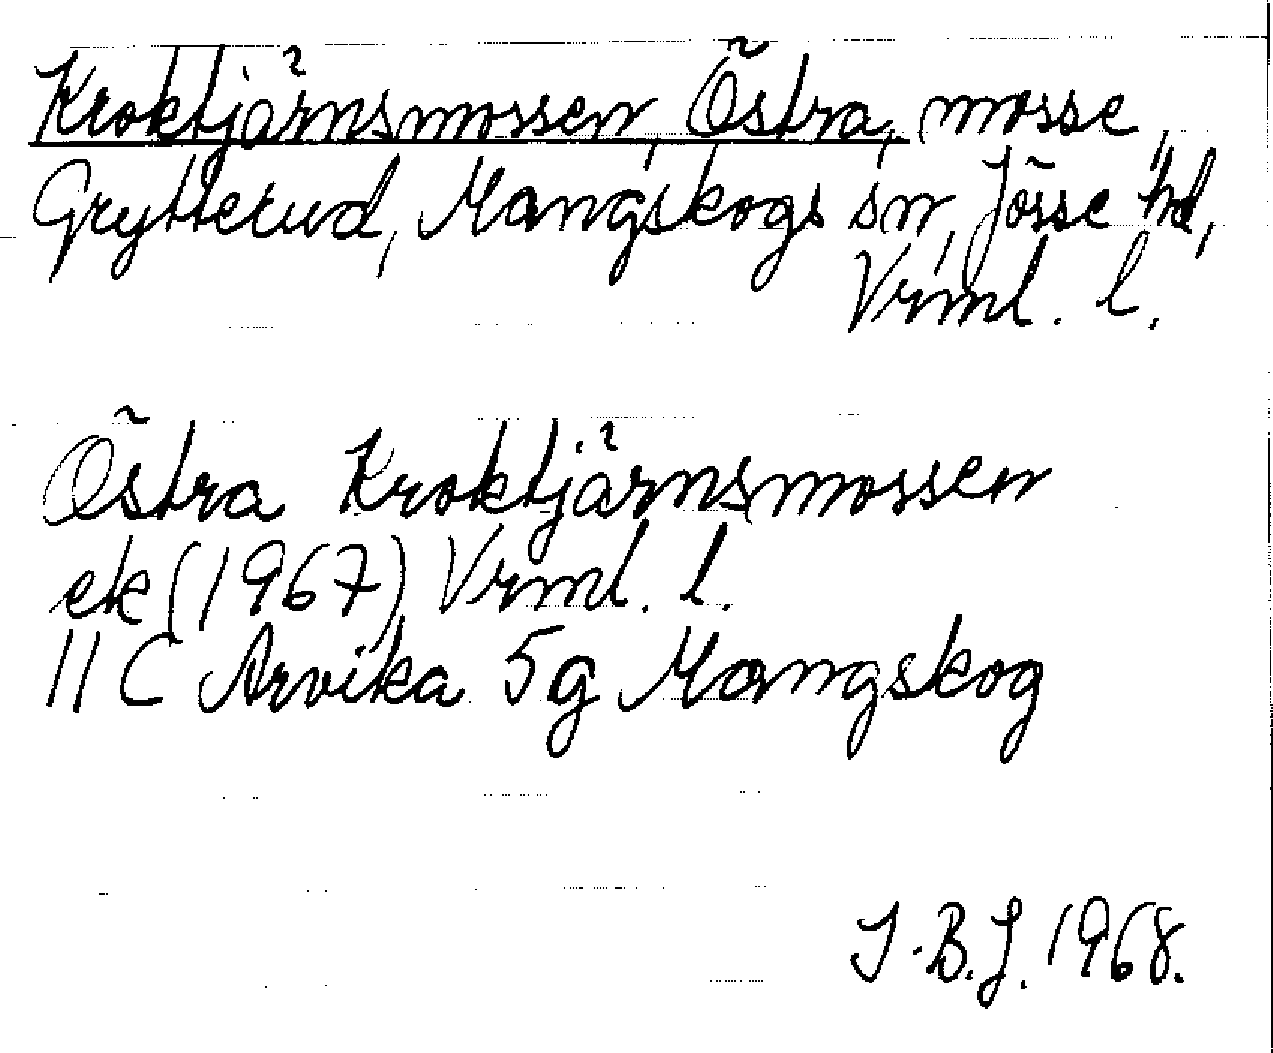 Kroktjärnsmossen, Östra, mosse,
Grytterud, Mangskogs sn, Jösse hd,
Vrml. l.
Östra Kroktjärnsmossen
ek (1967) Vrml. l.
11 C Arvika 5g Mangskog
I.B.J. 1968.